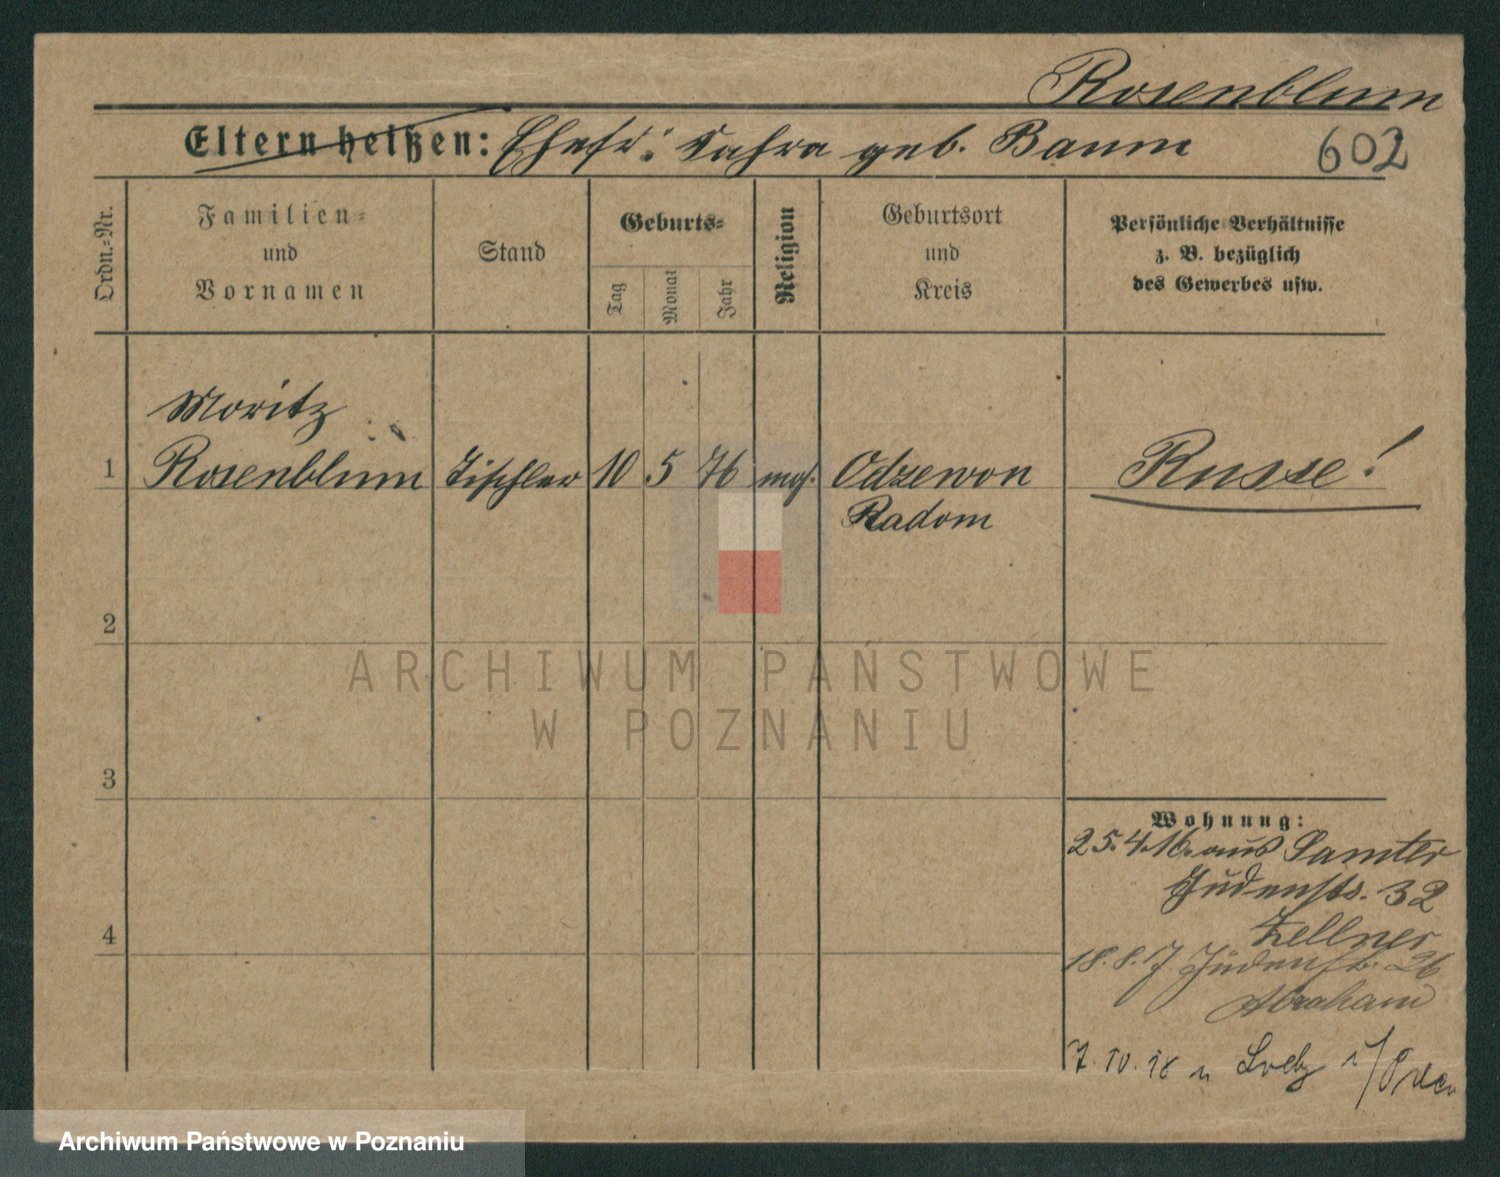 Rosenblum
Eltern heißen: Ehefr: Sahra geb. Baum 602
Ordn.=Nr.
Familien=
und
Vornamen
Stand
Geburts=
Tag
Monat
Jahr
Religion
Geburtsort
und
Kreis
Persönliche Verhältnisse
z. B. bezüglich
des Gewerbes usw.
Moritz
1 Rosenblum Tischler 10 5 76 mos. Odzewon Russe!
Radom
2
3
4
Wohnung:
25.4.16. aus Samter
Judenstr. 32
Zellner
18.8.17 Judenstr. 26
Abraham
7. IV. 18 n
ARCHIWUM PAŃSTWOWE
W POZNANIU
Archiwum Państwowe w Poznaniu